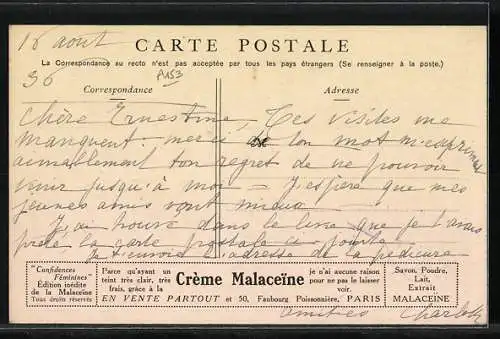 16 août
36
A153
CARTE POSTALE
La Correspondance au recto n'est pas acceptée par tous les pays étrangers (Se renseigner à la poste.)
Correspondance
Adresse
Chère Ernestine, Tes visites me
manquent. merci de ton mot m'exprimant
aimablement ton regret de ne pouvoir
venir jusqu'à moi — J'espère que mes
jeunes amis vont mieux
J'ai trouvé dans le livre que je t'avais
prêté la carte postale ci jointe
Je t'envoie l'adresse de la pédicure
"Confidences Féminines"
Édition inédite
de la Malaceïne
Tous droits réservés
Parce qu'ayant un
teint très clair, très
frais, grâce à la
Crème Malaceïne
je n'ai aucune raison
pour ne pas le laisser
voir.
EN VENTE PARTOUT et 50, Faubourg Poissonnière, PARIS
Savon, Poudre,
Lait,
Extrait
MALACEÏNE
amitiés Charlotte